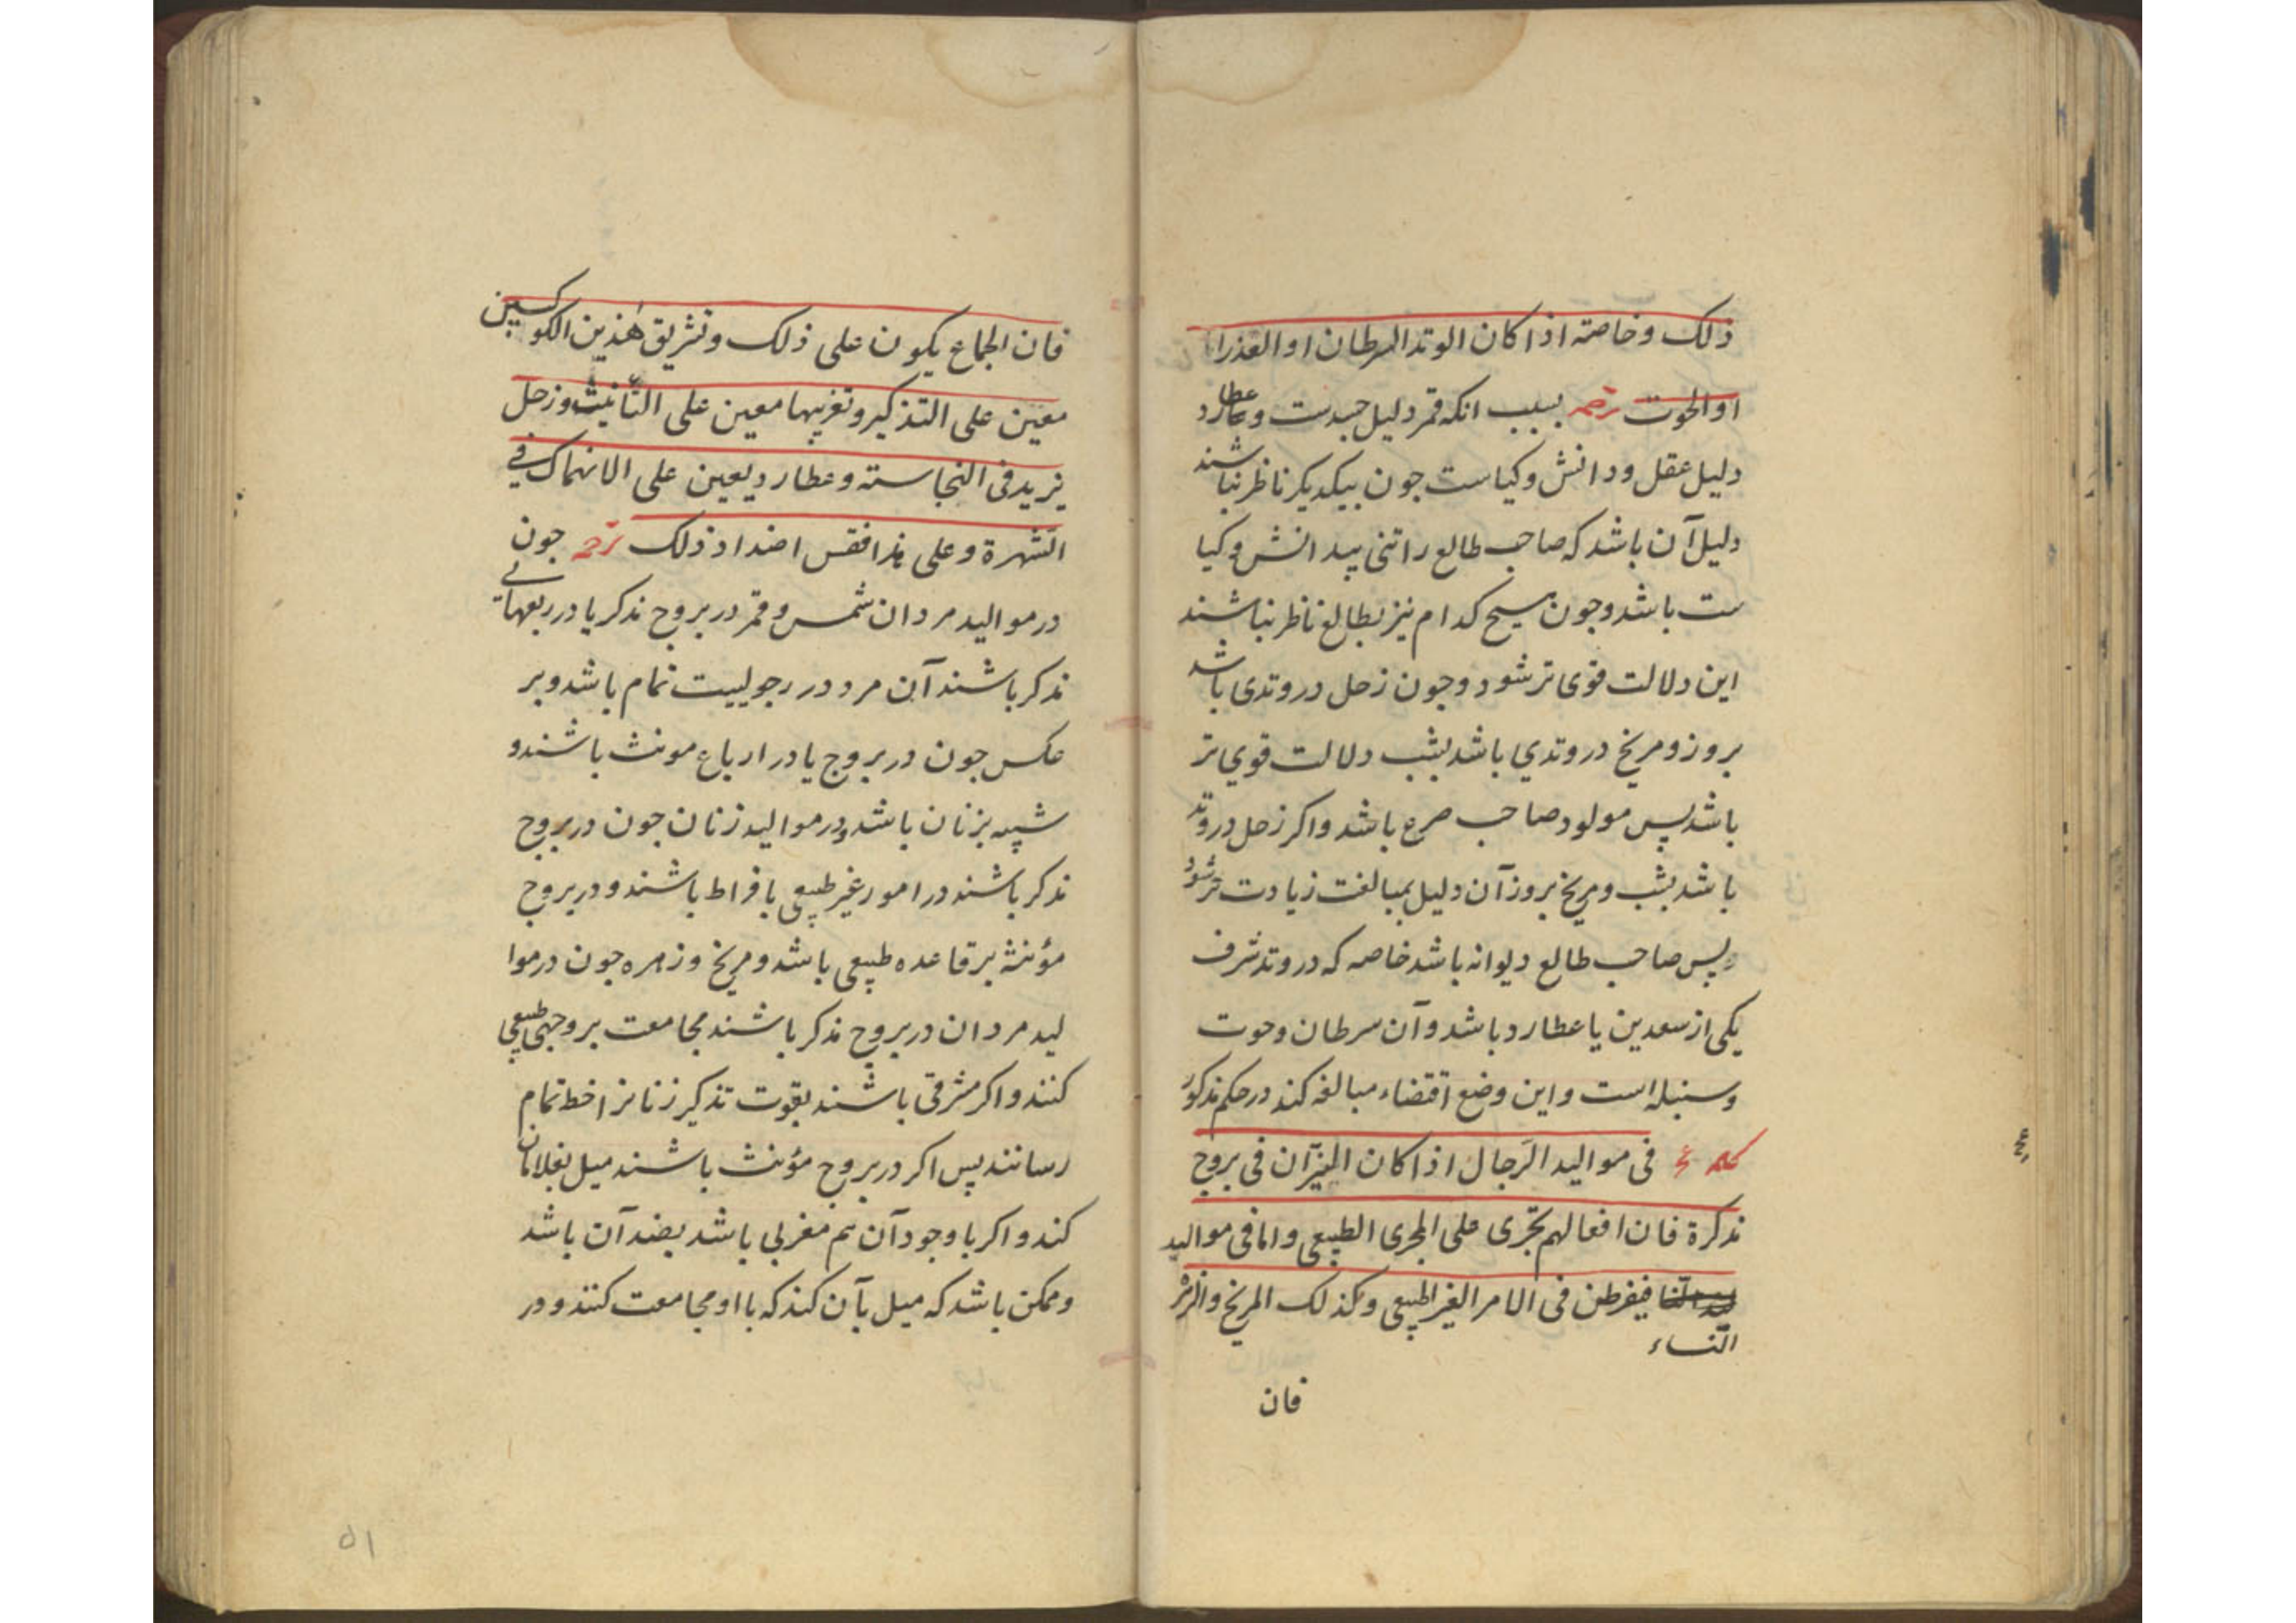 ذلک وخاصته اذا کان الوتد السرطان او العذرا
او الحوت ترجمه بسبب انکه قمر دلیل جسدست وعطارد
دلیل عقل ودانش وکیاست جون بیکدیکر ناظر نباشند
دلیل آن باشد که صاحب طالع را تنی بیدانش وکیا
ست باشد وجون هیچ کدام نیز بطالع ناظر نباشند
این دلالت قوی تر شود وجون زحل در وتدی باشد
بروز ومریخ در وتدي باشد بشب دلالت قوي تر
باشد پس مولود صاحب صرع باشد واکر زحل در وتد
باشد بشب ومریخ بروز آن دلیل بمبالغت زیادت تر شود
پس صاحب طالع دیوانه باشد خاصه که در وتد شرف
یکی از سعدین یا عطارد باشد وآن سرطان وحوت
وسنبله است واین وضع اقتضاء مبالغه کند در حکم مذکور
کلمه فی موالید الرّجال اذا کان النیّران فی بروج
مذکرة فان افعالهم تجری علی المجری الطبیعی واما فی موالید
النساء فیفرطن فی الامر الغیر الطبیعی وکذلک المریخ والزهر
فان
فان الجماع یکون علی ذلک وتشریق هٰذین الکوکبین
معین علی التذکیر وتغریبها معین علی التأنیث وزحل
یزید فی النجاسته وعطارد یعین علی الانهماک في
الشهرة وعلی هذا فقس اضداد ذلک ترجمه جون
در موالید مردان شمس وقمر در بروج مذکر یا در ربعهائے
مذکر باشند آن مرد در رجولییت تمام باشد وبر
عکس جون در بروج یا در ارباع مونث باشند و
شبیه بزنان باشد ودر موالید زنان جون در بروج
مذکر باشند در امور غیر طبیعی بافراط باشند ودر بروج
مؤنثه بر قاعده طبیعی باشد ومریخ وزهره جون در موا
لید مردان در بروج مذکر باشند مجامعت بر وجهی طبیعی
کنند واکر مشرقی باشند بقوت تذکیر زنانرا حظ تمام
رسانند پس اکر در بروج مؤنث باشند میل بغلامان
کند واکر با وجود آن هم مغربی باشد بضد آن باشد
وممکن باشد که میل بآن کند که با او مجامعت کنند ودر
۵۱